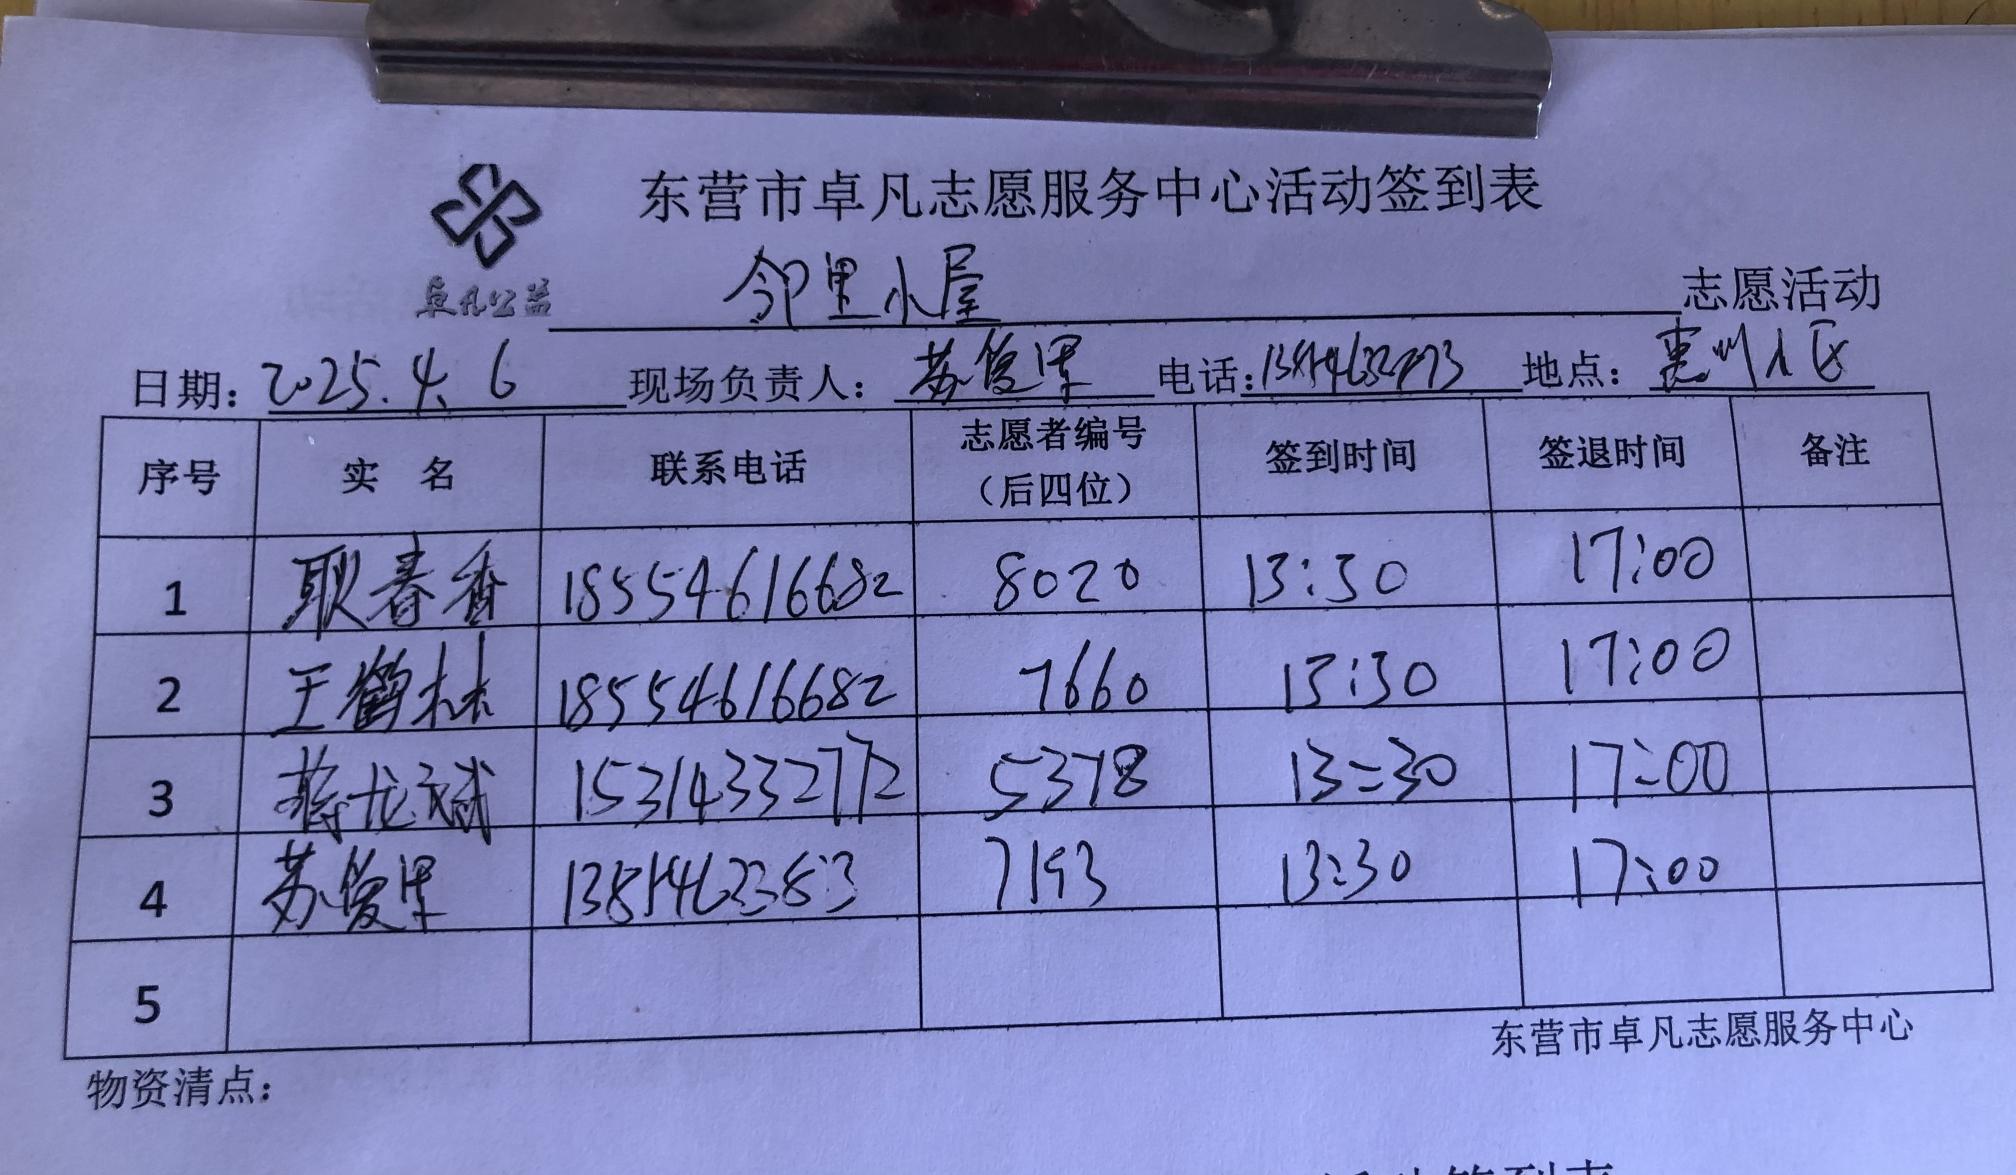 东营市卓凡志愿服务中心活动签到表
卓凡公益
邻里小屋 志愿活动
日期：2025.4.6 现场负责人：苏俊 电话： 地点：惠州小区
序号 实 名 联系电话 志愿者编号（后四位） 签到时间 签退时间 备注
1 耿春香 18554616682 8020 13:30 17:00
2 王鹤林 18554616682 7660 13:30 17:00
3 蒋龙斌 15314332772 5378 13:30 17:00
4 苏俊 7193 13:30 17:00
5
东营市卓凡志愿服务中心
物资清点：